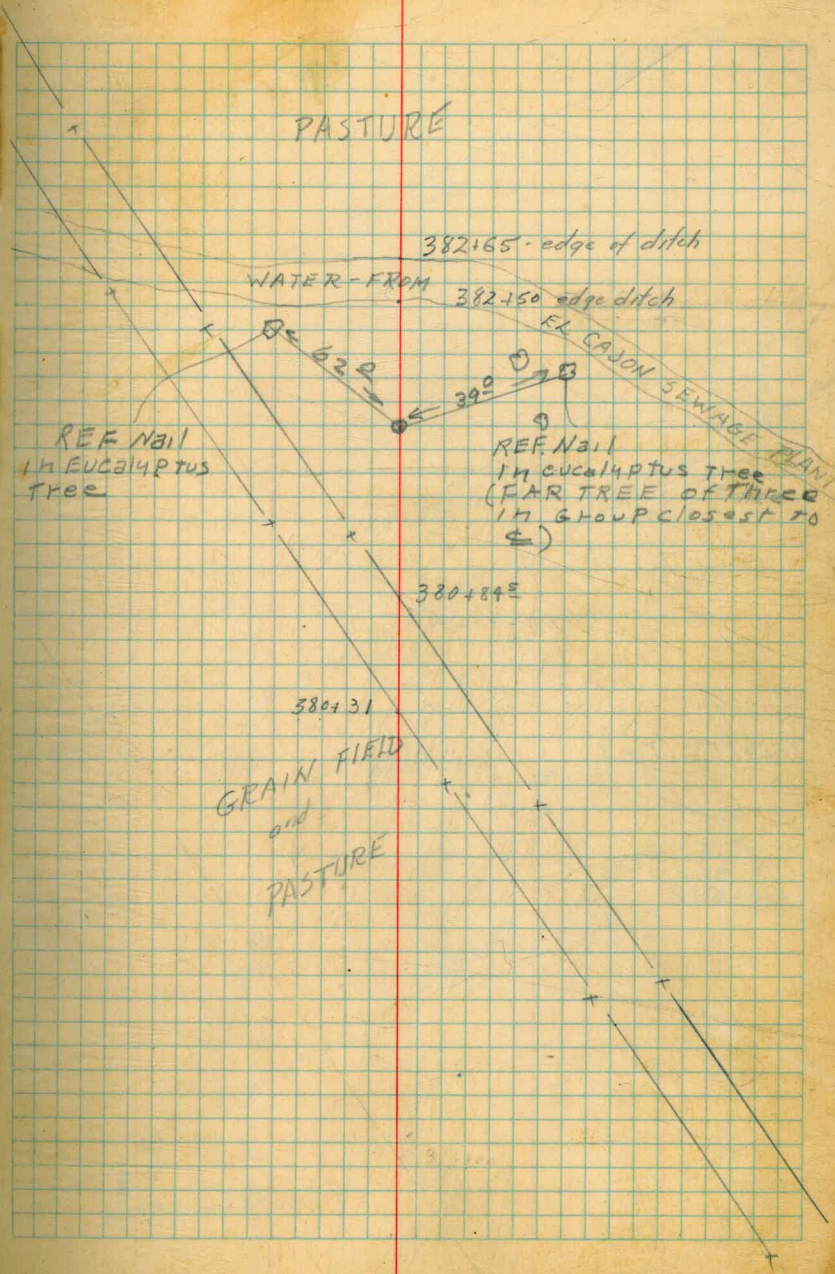 PASTURE
382+65 - edge of ditch
WATER - FROM
382+50 edge ditch
EL CAJON SEWAGE PLANT
62 0
39 0
REF. Nail
in Eucalyptus
Tree
REF. Nail
in eucalyptus Tree
(FAR TREE of Three
in Group closest to
℄)
380+84 5
380+31
GRAIN FIELD
and
PASTURE